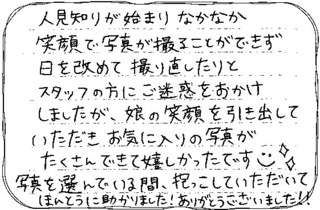 人見知りが始まり なかなか
笑顔で写真が撮ることができず
日を改めて 撮り直したりと
スタッフの方にご迷惑をおかけ
しましたが、娘の笑顔を引き出して
いただき お気に入りの写真が
たくさんできて嬉しかったです
写真を選んでいる間、抱っこしていただいて
ほんとうに助かりました!ありがとうございました!!